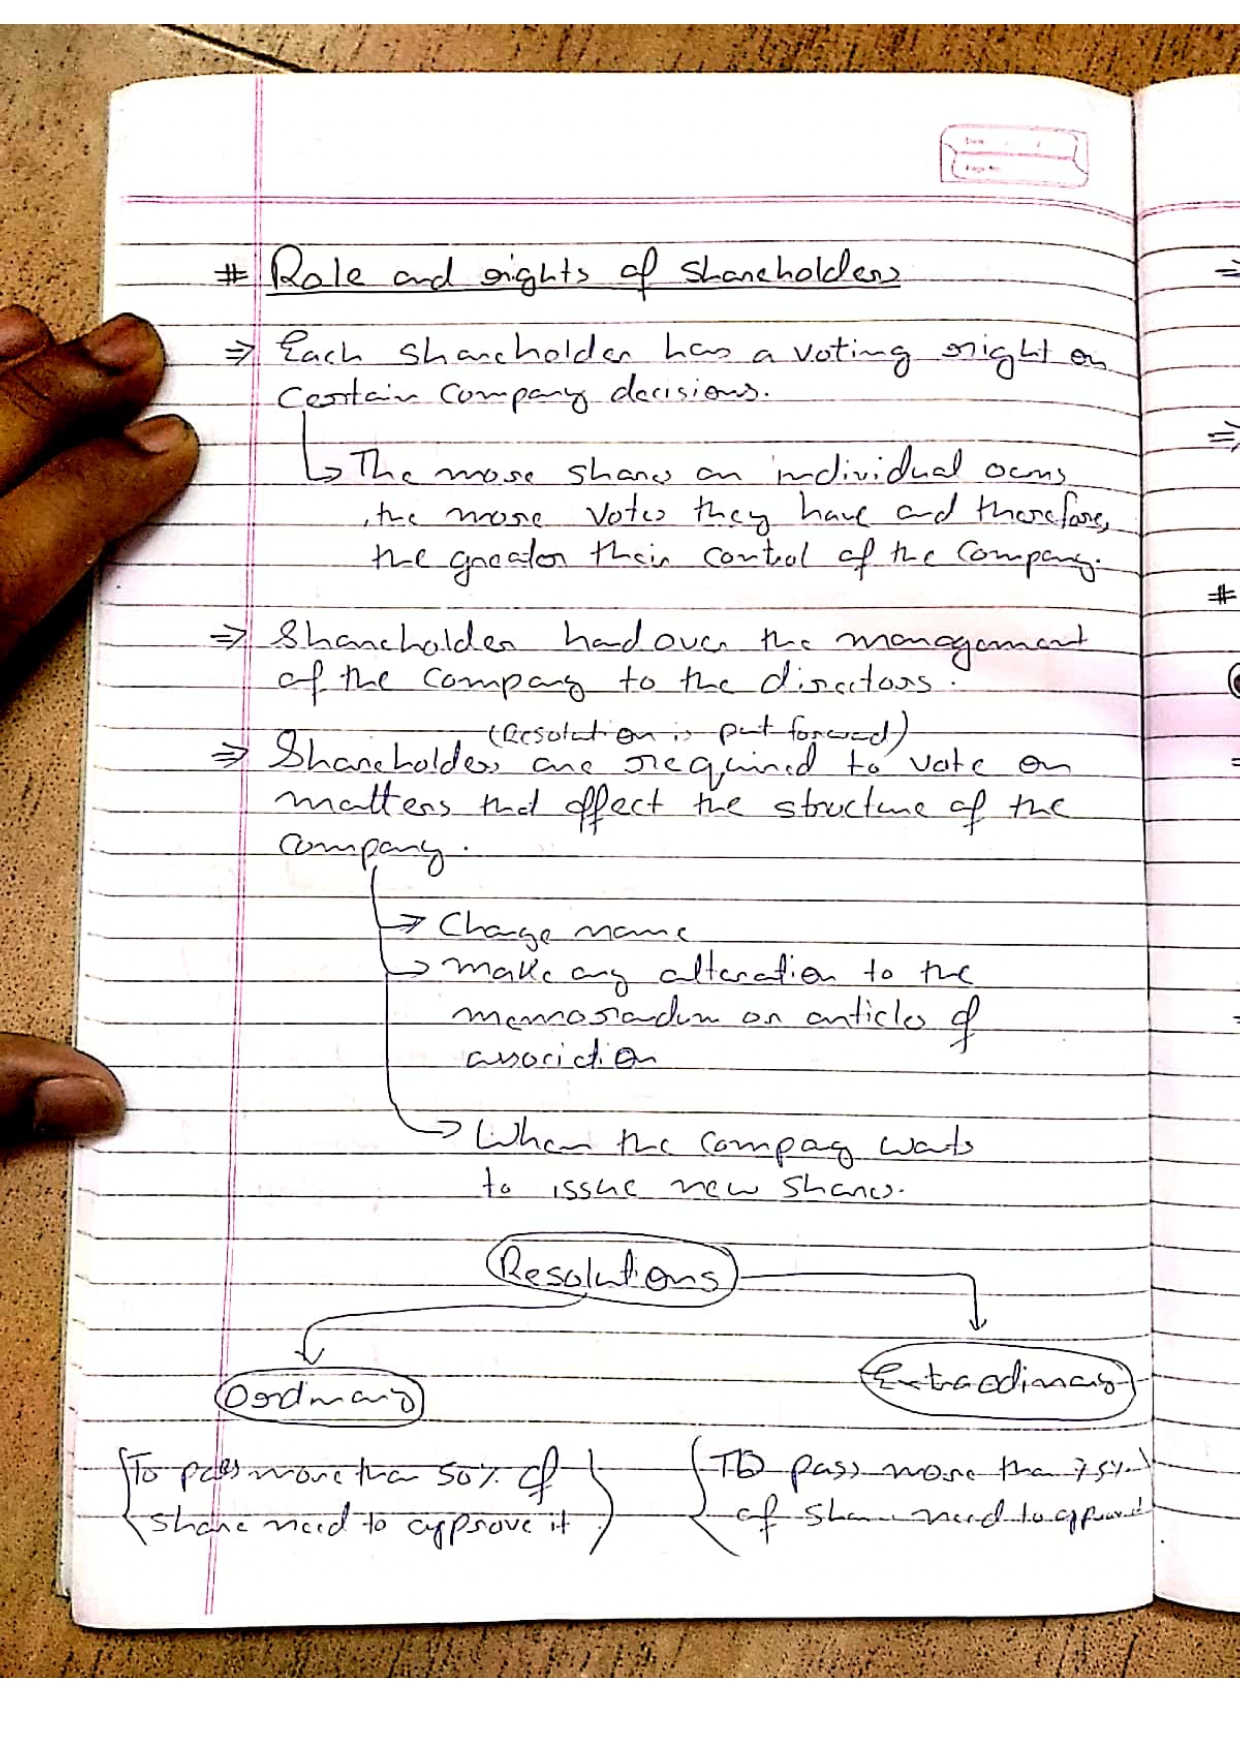 # Role and rights of shareholders
⇒ Each shareholder has a voting right on
certain company decisions.
↳ The more shares an individual owns,
the more votes they have and therefore,
the greater their control of the company.
⇒ Shareholder hand over the management
of the company to the directors.
(Resolution is put forward)
⇒ Shareholders are required to vote on
matters that affect the structure of the
company.
→ Change name
→ make any alteration to the
memorandum or articles of
association
→ When the company wants
to issue new shares.
Resolutions
Ordinary
Extraodinary
To pass more than 50% of
share need to approve it
To pass more than 75%
of share need to approve it